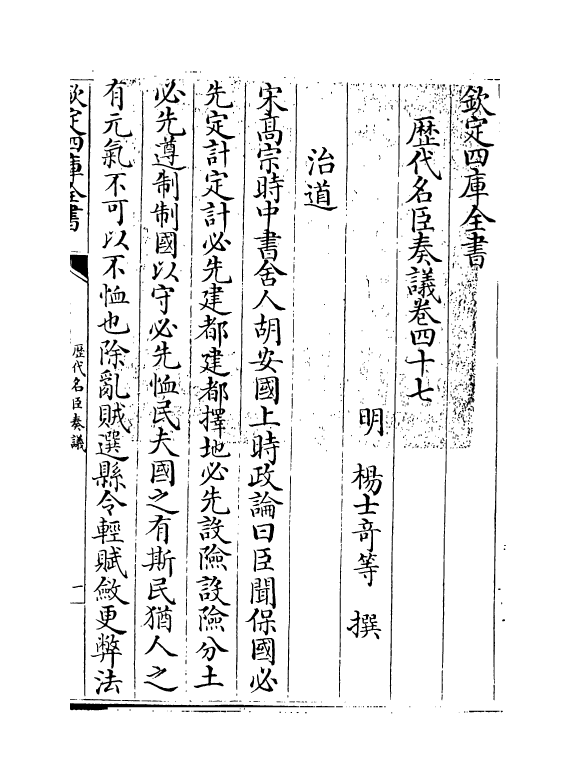 欽定四庫全書
歴代名臣奏議卷四十七
明 楊士竒等 撰
治道
宋髙宗時中書舍人胡安國上時政論曰臣聞保國必
先定計定計必先建都建都擇地必先設險設險分土
必先遵制制國以守必先恤民夫國之有斯民猶人之
有元氣不可以不恤也除亂賊選縣令輕賦斂更弊法
欽定四庫全書
歴代名臣奏議
一